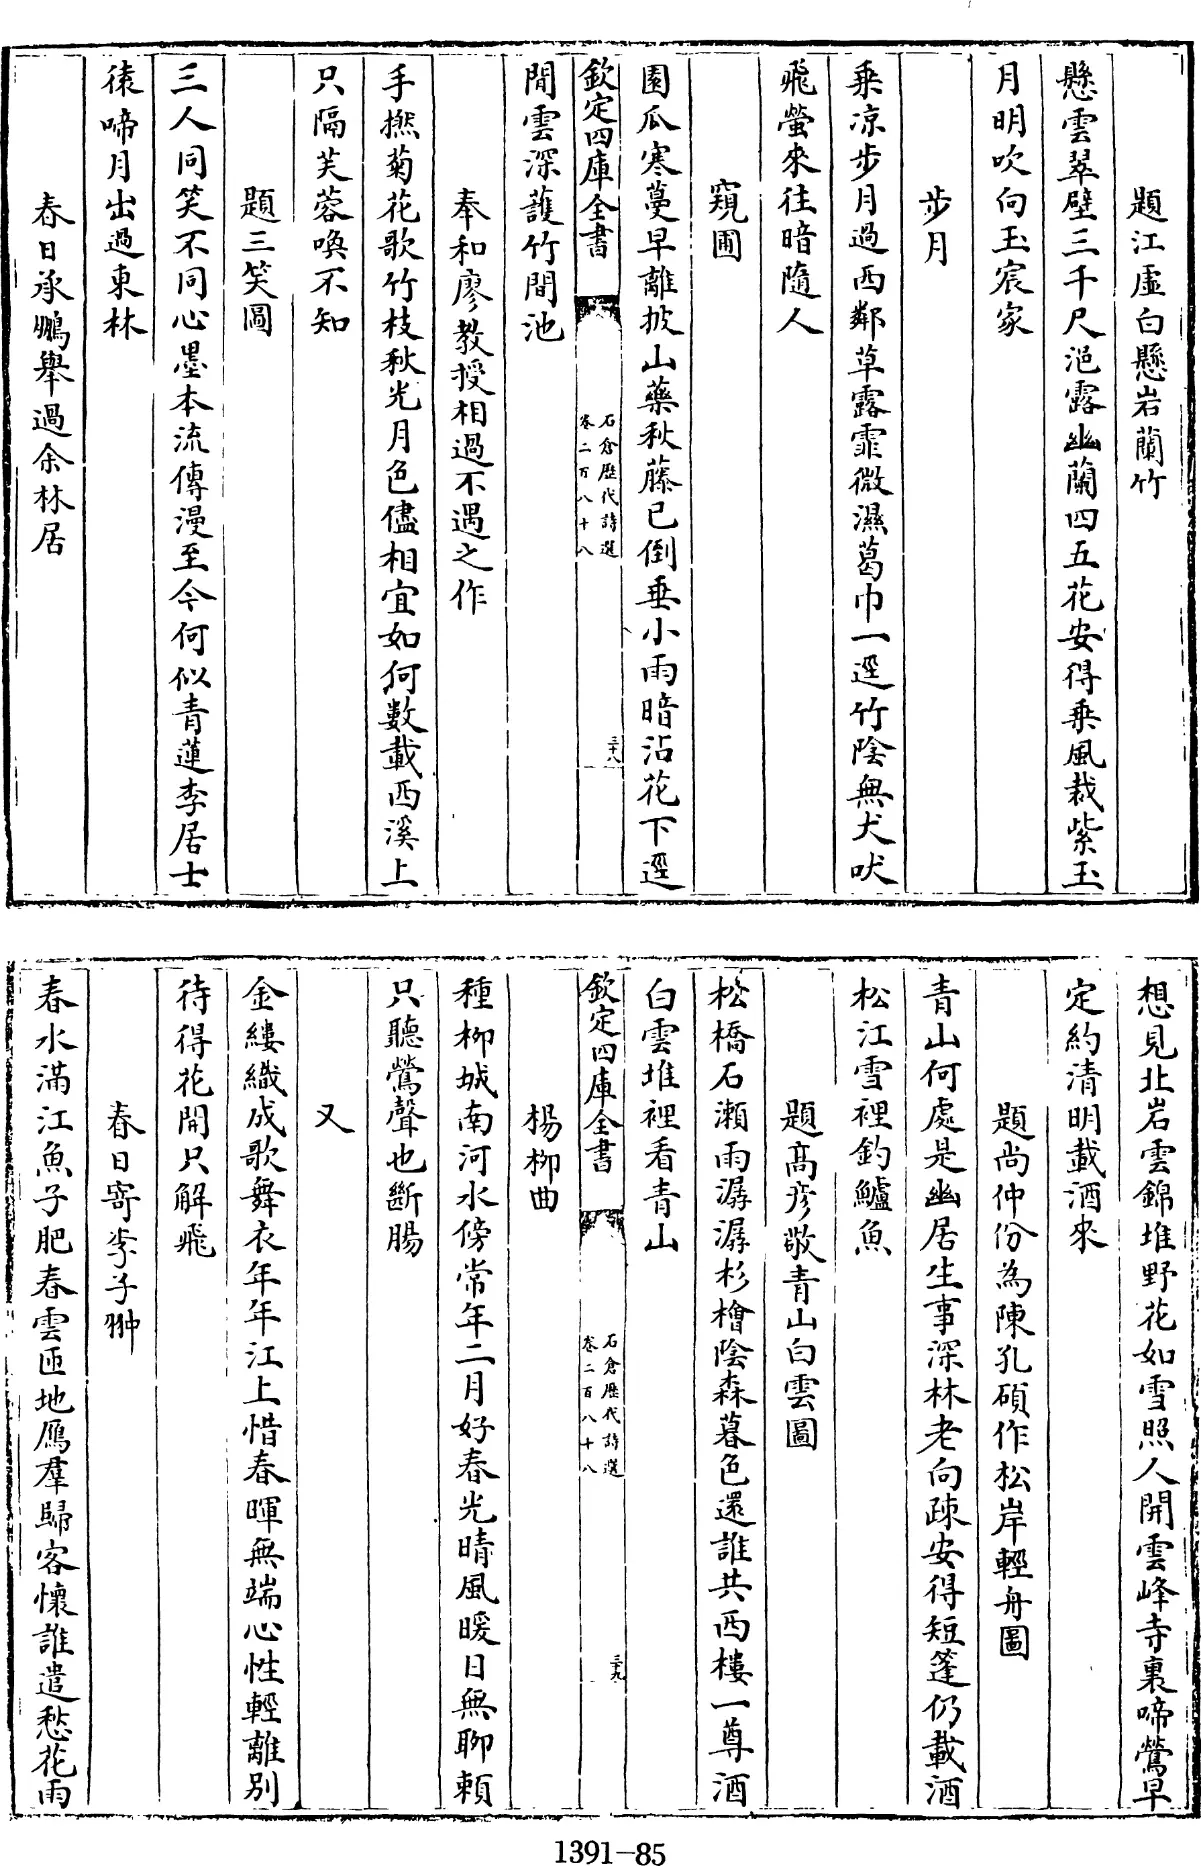 題江虛白懸岩蘭竹
懸雲翠壁三千尺浥露幽蘭四五花安得乗風裁紫玉
月明吹向玉宸家
步月
乗凉步月過西鄰草露霏微濕葛巾一逕竹陰無犬吠
飛螢來往暗隨人
窺圃
園瓜寒蔓早離披山藥秋藤已倒垂小雨暗沾花下逕
欽定四庫全書
石倉歷代詩選
卷二百八十八
三十八
閒雲深護竹間池
奉和廖教授相過不遇之作
手撚菊花歌竹枝秋光月色儘相宜如何數載西溪上
只隔芙蓉喚不知
題三笑圖
三人同笑不同心墨本流傳漫至今何似青蓮李居士
猿啼月出過東林
春日承鵬舉過余林居
想見北岩雲錦堆野花如雪照人開雲峰寺裏啼鶯早
定約清明載酒來
題尚仲份為陳孔碩作松岸輕舟圖
青山何處是幽居生事深林老向疎安得短篷仍載酒
松江雪裡釣鱸魚
題髙彦敬青山白雲圖
松橋石瀬雨潺潺杉檜陰森暮色還誰共西樓一尊酒
白雲堆裡看青山
欽定四庫全書
石倉歷代詩選
卷二百八十八
三十九
楊柳曲
種柳城南河水傍常年二月好春光晴風暖日無聊頼
只聽鶯聲也斷腸
又
金縷織成歌舞衣年年江上惜春暉無端心性輕離别
待得花開只解飛
春日寄李子翀
春水滿江魚子肥春雲匝地鴈羣歸客懷誰遣愁花雨
1391-85